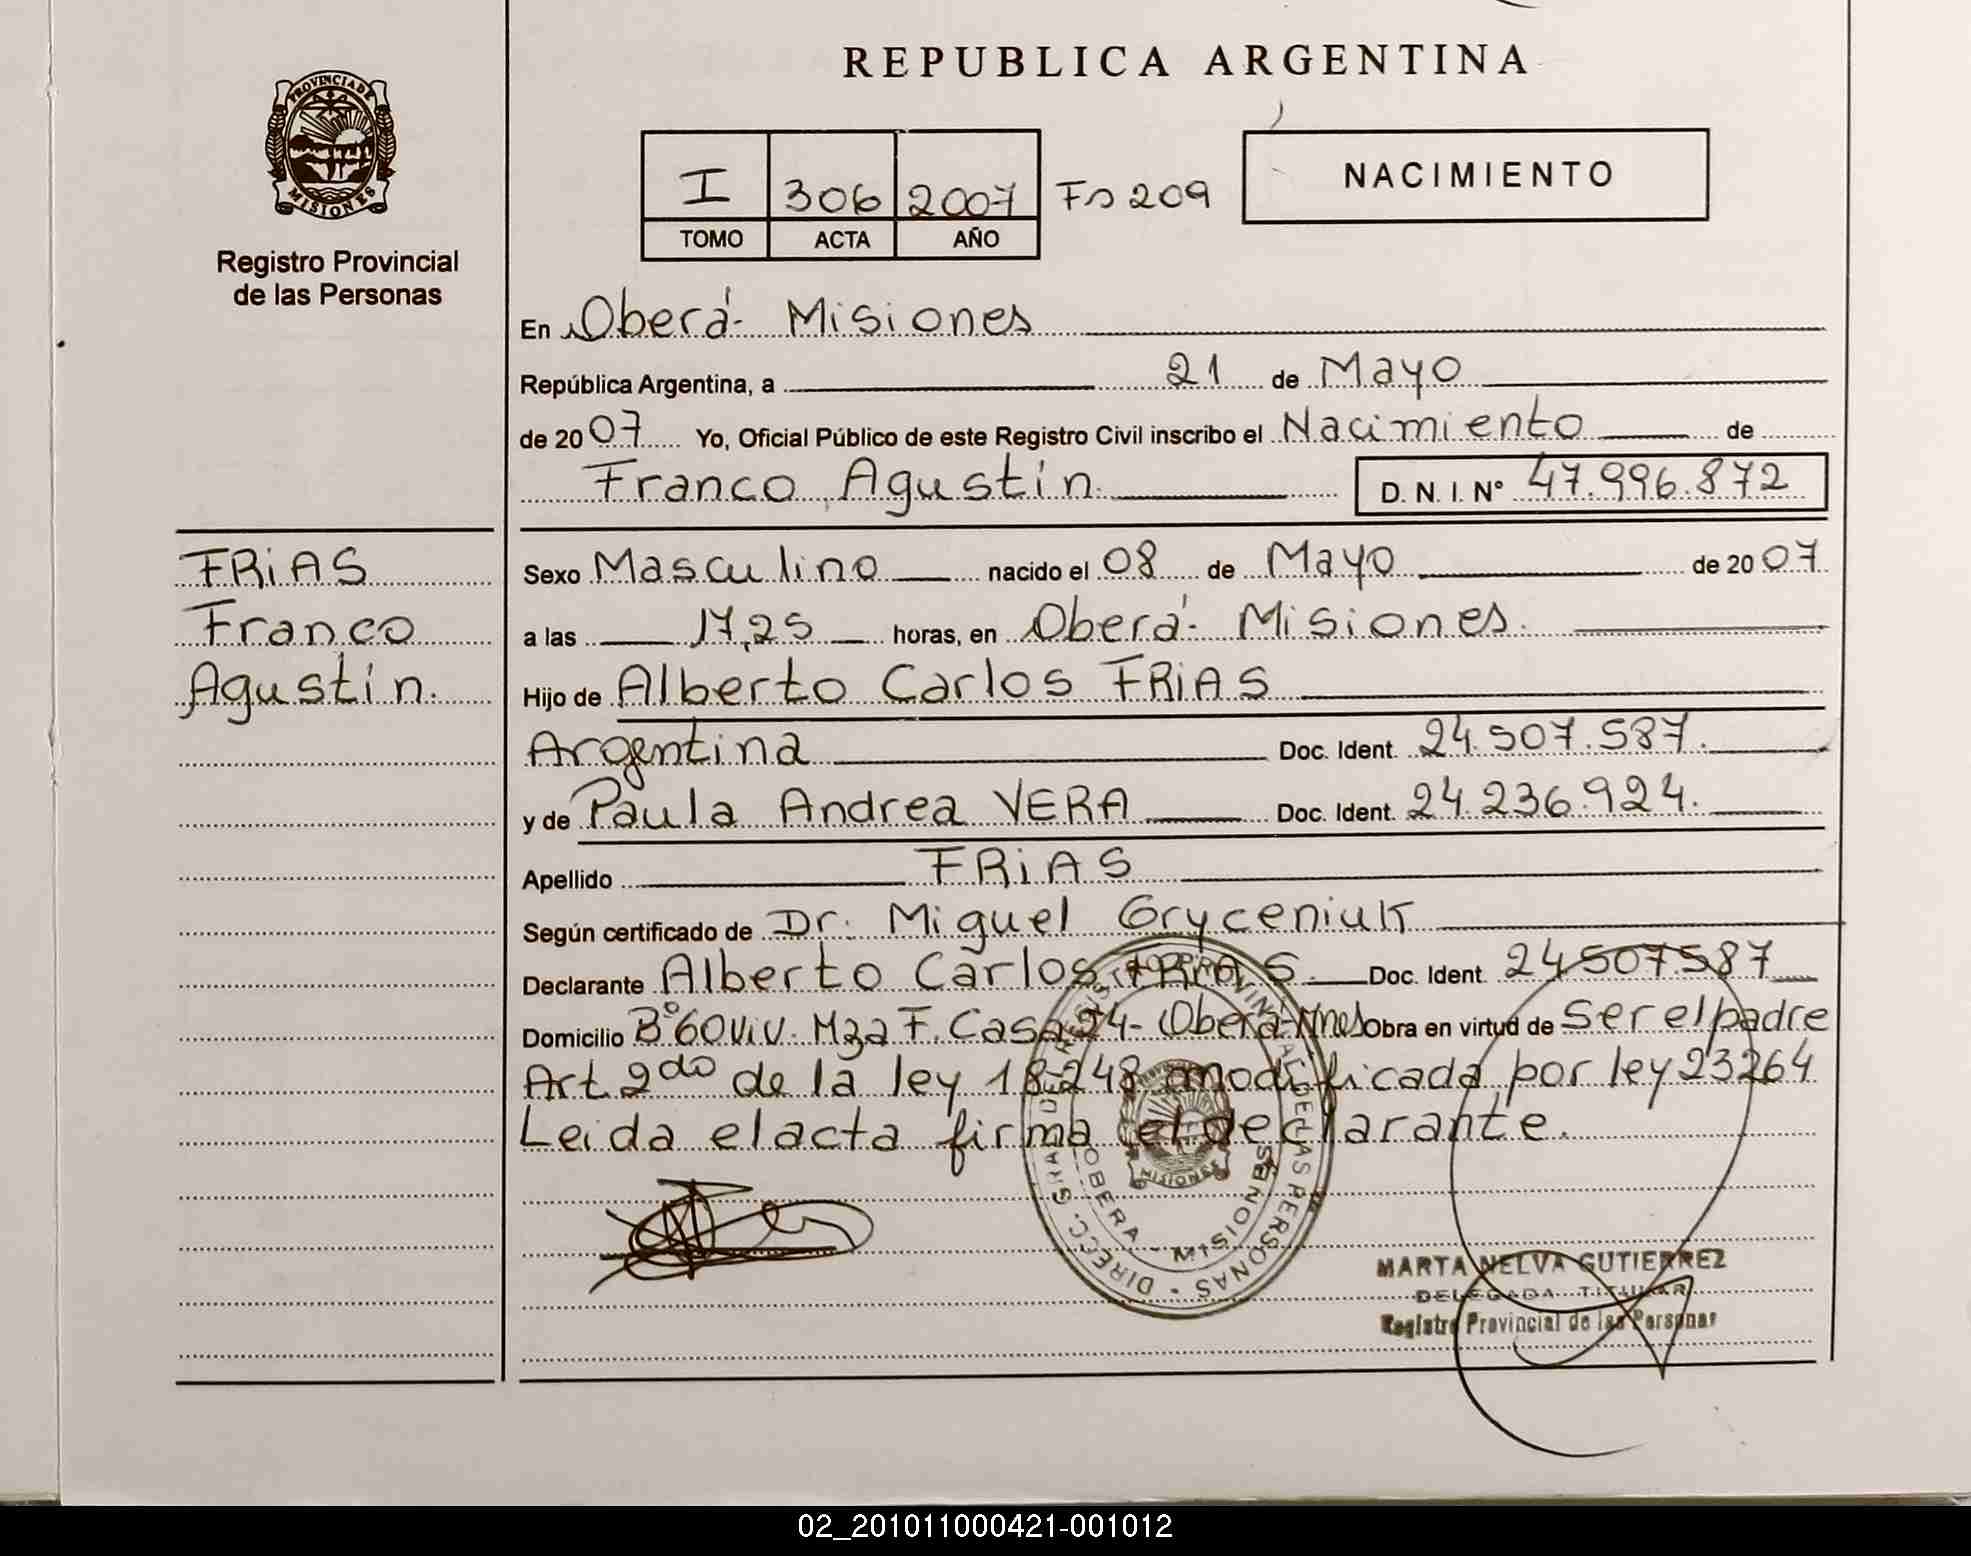 REPUBLICA ARGENTINA
PROVINCIA DE
MISIONES
Registro Provincial
de las Personas
I 306 2007 Fs 209
TOMO ACTA AÑO
NACIMIENTO
En Oberá - Misiones
República Argentina, a 21 de Mayo
de 2007 Yo, Oficial Público de este Registro Civil inscribo el Nacimiento de
Franco Agustín D. N. I. Nº 47.996.872
FRiAS
Franco
Agustín.
Sexo Masculino nacido el 08 de Mayo de 2007
a las 17,25 horas, en Oberá - Misiones.
Hijo de Alberto Carlos FRiAS
Argentina Doc. Ident. 24.507.587.
y de Paula Andrea VERA Doc. Ident. 24.236.924.
Apellido FRiAS
Según certificado de Dr. Miguel Gryceniuk
Declarante Alberto Carlos FRiAS. Doc. Ident. 24507587
Domicilio Bº 60 viv. Mza F. Casa 24 - Oberá - Mnes Obra en virtud de ser el padre
Art. 2do de la ley 18.248 modificada por ley 23264
Leida el acta firma el declarante.
DIRECC. GRAL DE REGISTRO PROVINCIAL DE LAS PERSONAS
OBERA - MISIONES
MISIONES
MARTA NELVA GUTIERREZ
DELEGADA TITULAR
Registro Provincial de las Personas
02_201011000421-001012